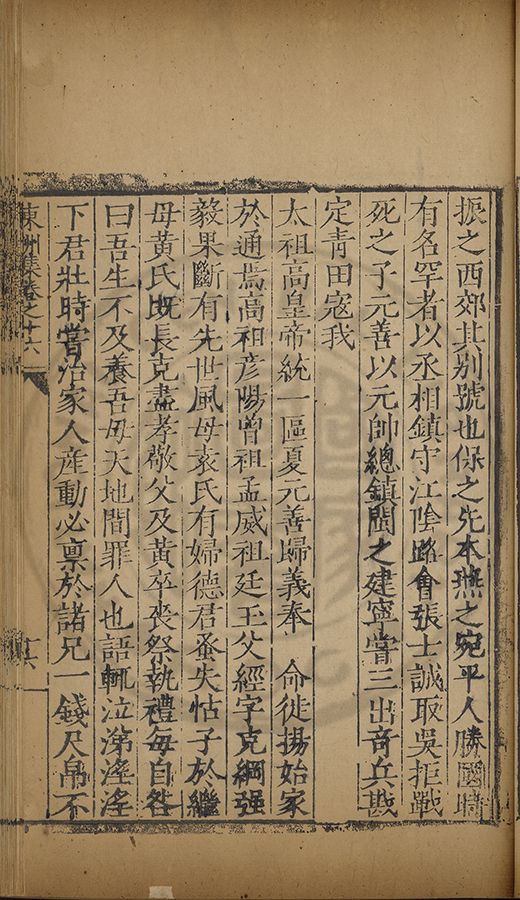 振之西郊其别號也保之先本燕之宛平人勝國時
有名罕者以丞相鎮守江陰路會張士誠取吳拒戰
死之子元善以元帥總鎮閩之建寧嘗三出奇兵戡
定青田寇我
太祖高皇帝統一區夏元善歸義奉 命徙揚始家
於通焉高祖彦陽曾祖孟威祖廷玉父經字克綱强
毅果斷有先世風母袁氏有婦德君蚤失怙子於繼
母黃氏既長克盡孝敬父及黃卒丧祭執禮每自咎
曰吾生不及養吾母天地間罪人也語輒泣涕滛滛
下君壯時嘗治家人産動必禀於諸兄一錢尺帛不
東洲集卷之十六